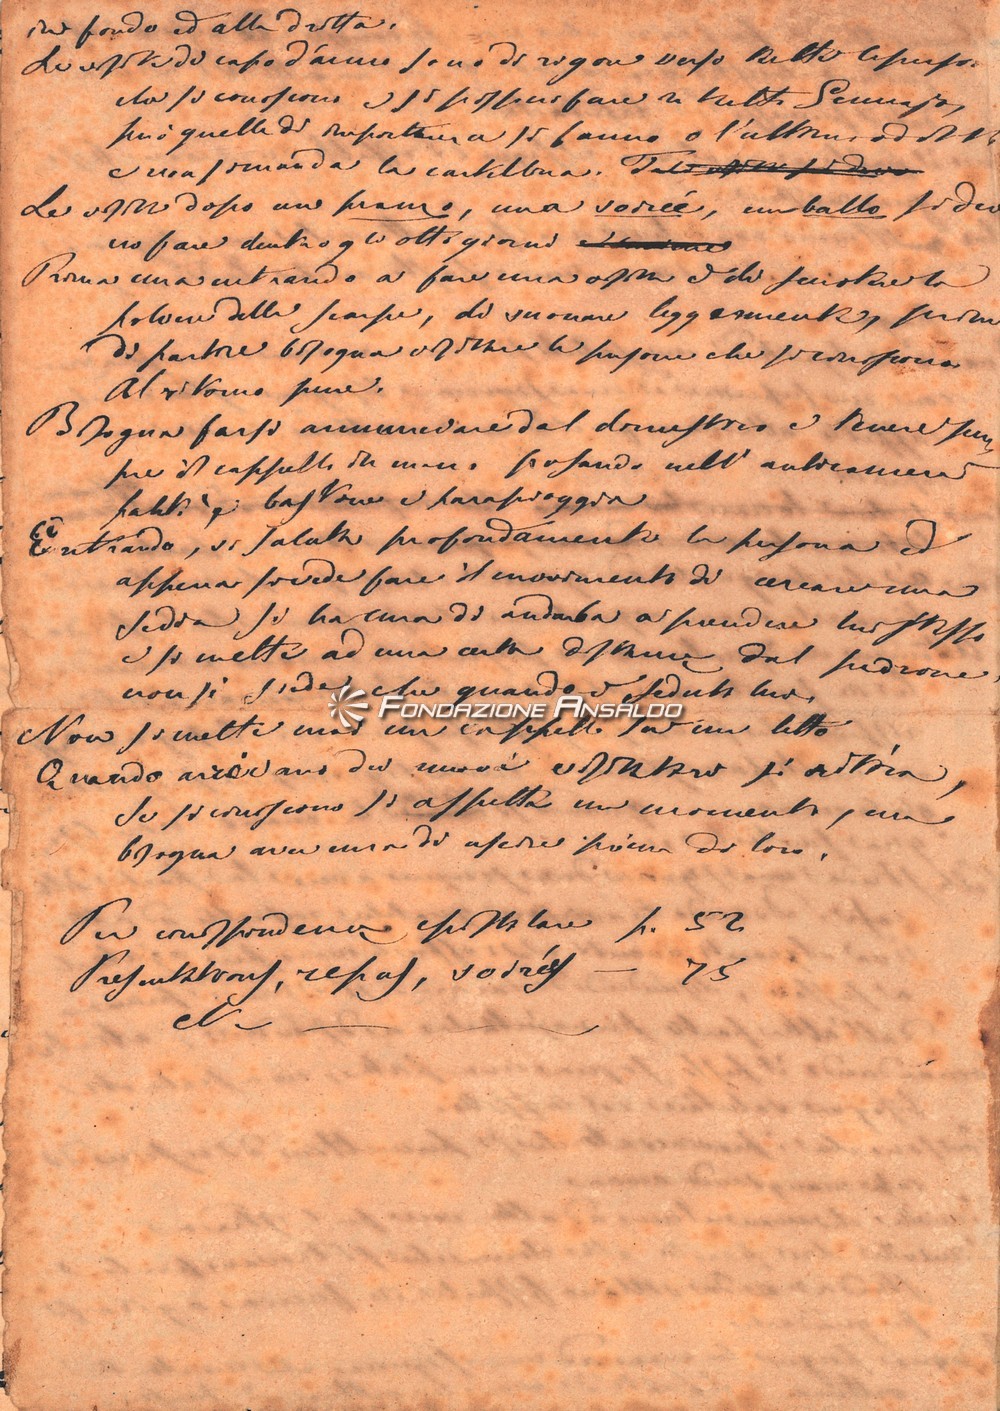 in fondo ed alla dritta.
Le visite di capo d'anno sono di rigore verso tutte le perso-
che si conoscono e si possono fare in tutto Gennajo,
più quelle di importanza si fanno o l'ultimo
e una si manda la cartellina.
Le visite dopo un pranzo, una soirée, un ballo si devo
no fare dentro gli otto giorni
Prima una entrando a fare una visita è di scuotere la
polvere delle scarpe, di suonare leggermente, prima
di partire bisogna visitare le persone che si conoscono.
Al ritorno pure.
Bisogna farsi annunciare dal domestico e tenere sem
pre il cappello in mano posando nell'anticamera
bastone e parapioggia
Entrando, si saluta profondamente la persona ed
appena si vede fare il movimento di cercare una
sedia si ha cura di andarla a prendere lui stesso
e si mette ad una certa distanza dal padrone,
non si siede che quando è seduto lui.
FONDAZIONE ANSALDO
Non si mette mai un cappello su un letto
Quando arrivano dei nuovi visitatori si ritira,
Se si conoscono si aspetta un momento, ma
bisogna aver cura di uscire prima di loro.
Per corrispondenza epistolare p. 52
Presentations, repas, soirées — 75